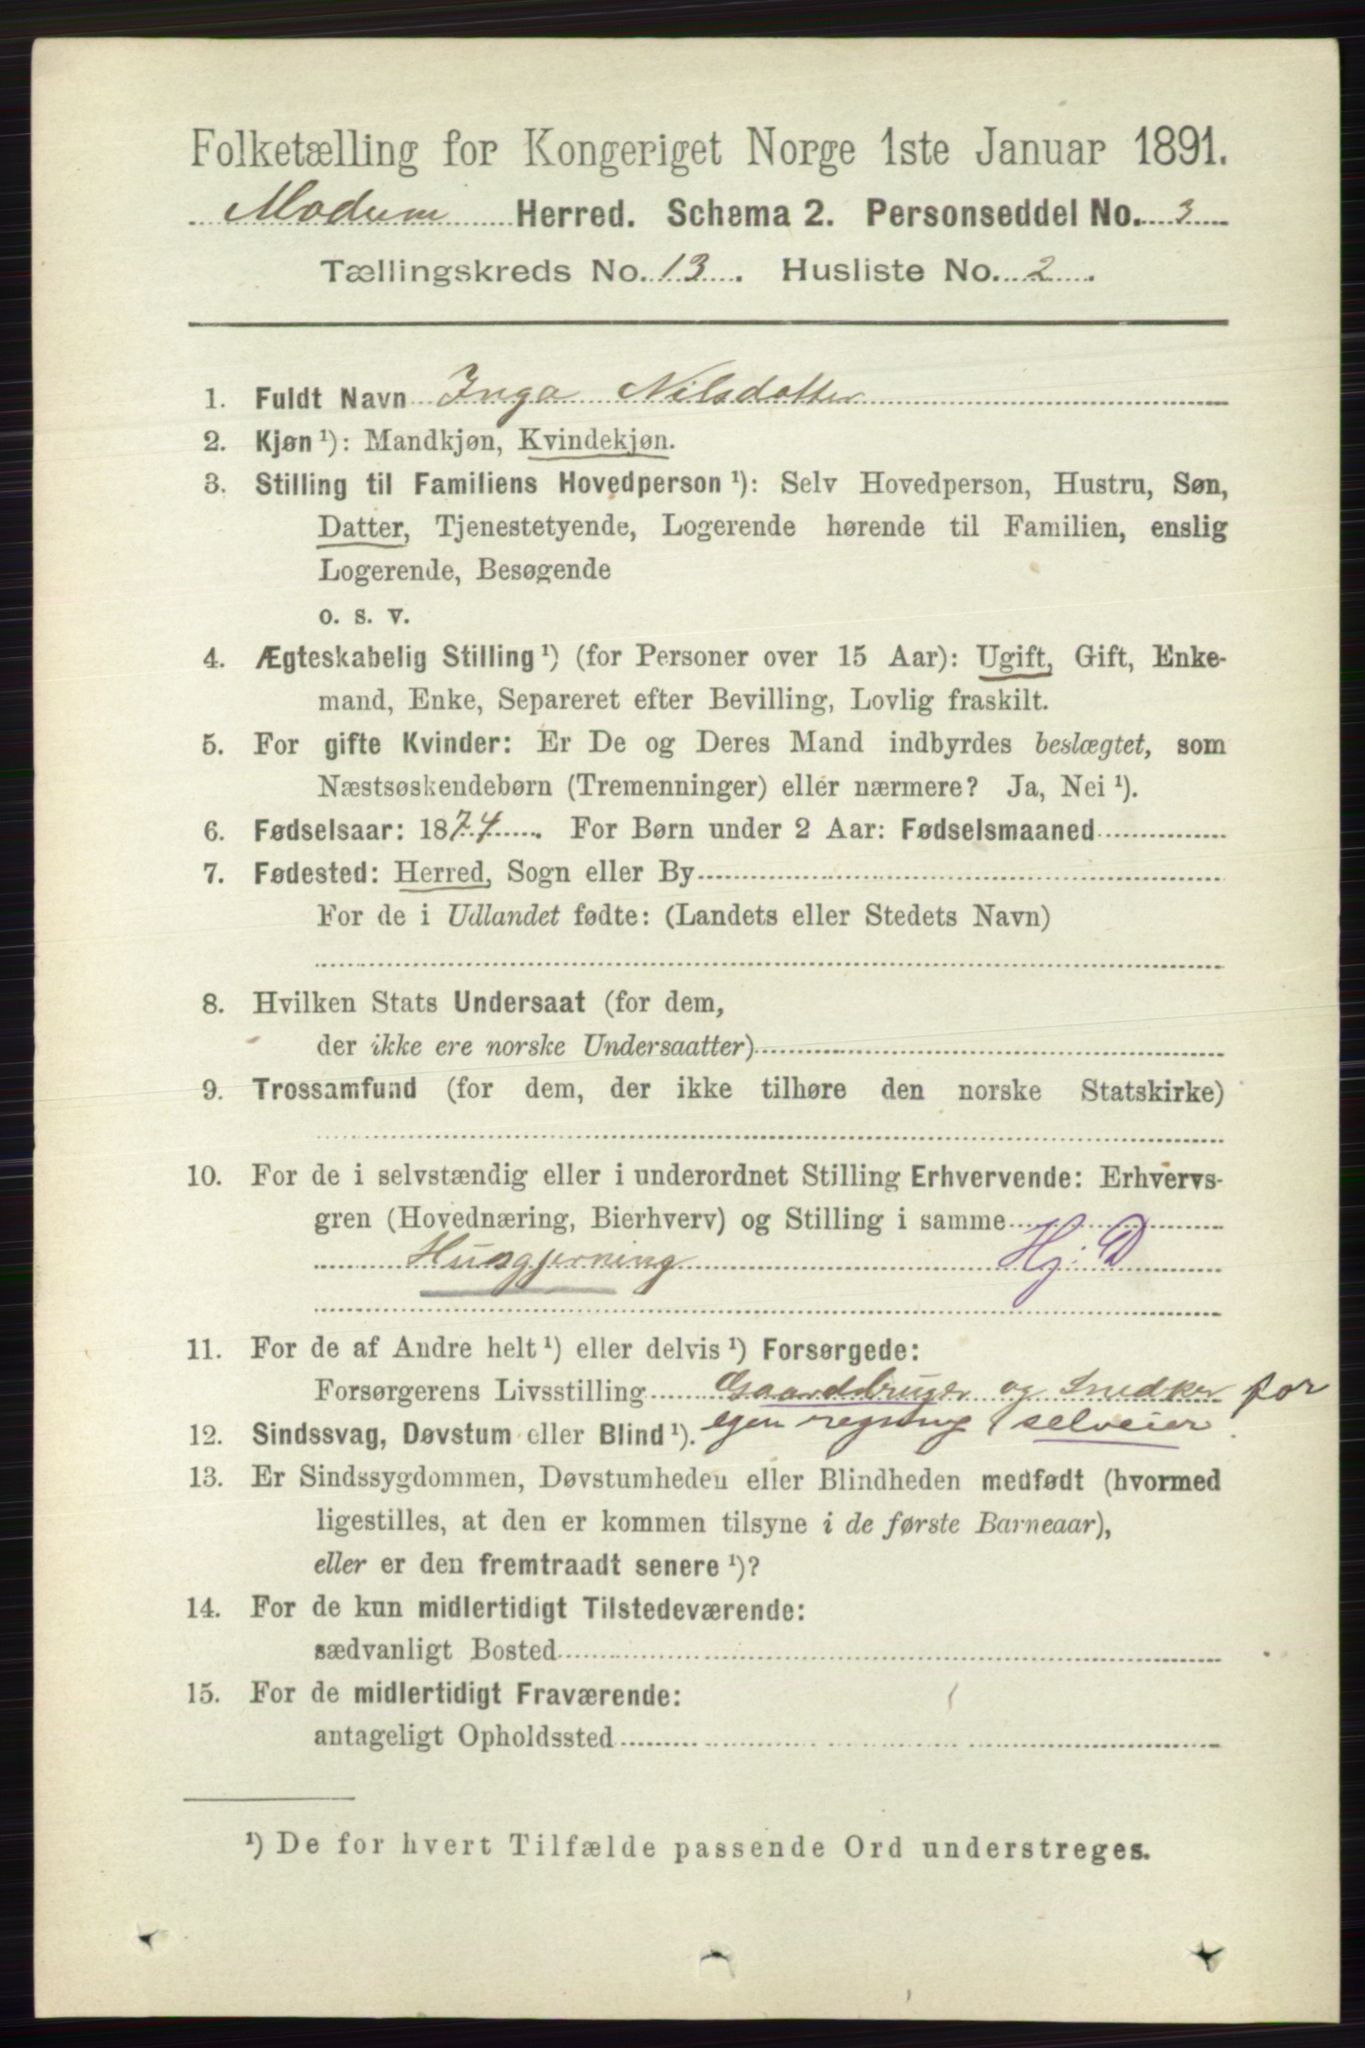 Folketælling for Kongeriget Norge 1ste Januar 1891.
Modum Herred. Schema 2. Personseddel No. 3
Tællingskreds No. 13. Husliste No. 2.
1. Fuldt Navn Inga Nilsdatter
2. Kjøn ¹): Mandkjøn, Kvindekjøn.
3. Stilling til Familiens Hovedperson ¹): Selv Hovedperson, Hustru, Søn,
Datter, Tjenestetyende, Logerende hørende til Familien, enslig
Logerende, Besøgende
o. s. v.
4. Ægteskabelig Stilling ¹) (for Personer over 15 Aar): Ugift, Gift, Enke-
mand, Enke, Separeret efter Bevilling, Lovlig fraskilt.
5. For gifte Kvinder: Er De og Deres Mand indbyrdes beslægtet, som
Næstsøskendebørn (Tremenninger) eller nærmere? Ja, Nei ¹).
6. Fødselsaar: 1874. For Børn under 2 Aar: Fødselsmaaned
7. Fødested: Herred, Sogn eller By
For de i Udlandet fødte: (Landets eller Stedets Navn)
8. Hvilken Stats Undersaat (for dem,
der ikke ere norske Undersaatter)
9. Trossamfund (for dem, der ikke tilhøre den norske Statskirke)
10. For de i selvstændig eller i underordnet Stilling Erhvervende: Erhvervs-
gren (Hovednæring, Bierhverv) og Stilling i samme
Husgjerning Hj. D
11. For de af Andre helt ¹) eller delvis ¹) Forsørgede:
Forsørgerens Livsstilling Gaardbruger og Snedker for
12. Sindssvag, Døvstum eller Blind ¹). egen regning / selveier.
13. Er Sindssygdommen, Døvstumheden eller Blindheden medfødt (hvormed
ligestilles, at den er kommen tilsyne i de første Barneaar),
eller er den fremtraadt senere ¹)?
14. For de kun midlertidigt Tilstedeværende:
sædvanligt Bosted
15. For de midlertidigt Fraværende:
antageligt Opholdssted
¹) De for hvert Tilfælde passende Ord understreges.